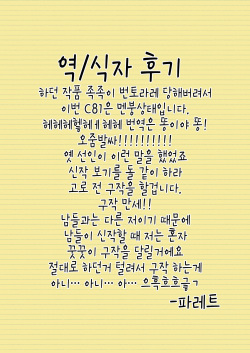 역/식자 후기
하던 작품 족족이 번토라레 당해버려서
이번 C81은 멘붕상태입니다.
헤헤헤헿헤ㅔ헤헤 번역은 똥이야 똥!
오줌발싸!!!!!!!!!!
옛 선인이 이런 말을 했었죠
신작 보기를 돌 같이 하라
고로 전 구작을 할겁니다.
구작 만세!!
남들과는 다른 저이기 때문에
남들이 신작할 때 저는 혼자
꿋꿋이 구작을 달릴거에요
절대로 하던거 털려서 구작 하는게
아니… 아니… 아… 으흑흐흐긓ㄱ
-파레트